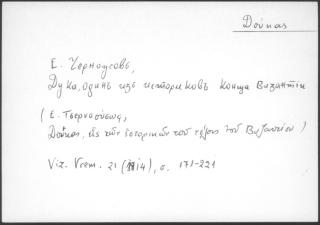 Δούκας
Е. Черноусовъ,
Дука, одинъ изъ историковъ конца Византіи
(Ε. Τσερνοούσωφ,
Δούκας, εἷς τῶν ἱστορικῶν τοῦ τέλους τοῦ Βυζαντίου)
Viz. Vrem. 21 (1914), σ. 171-221